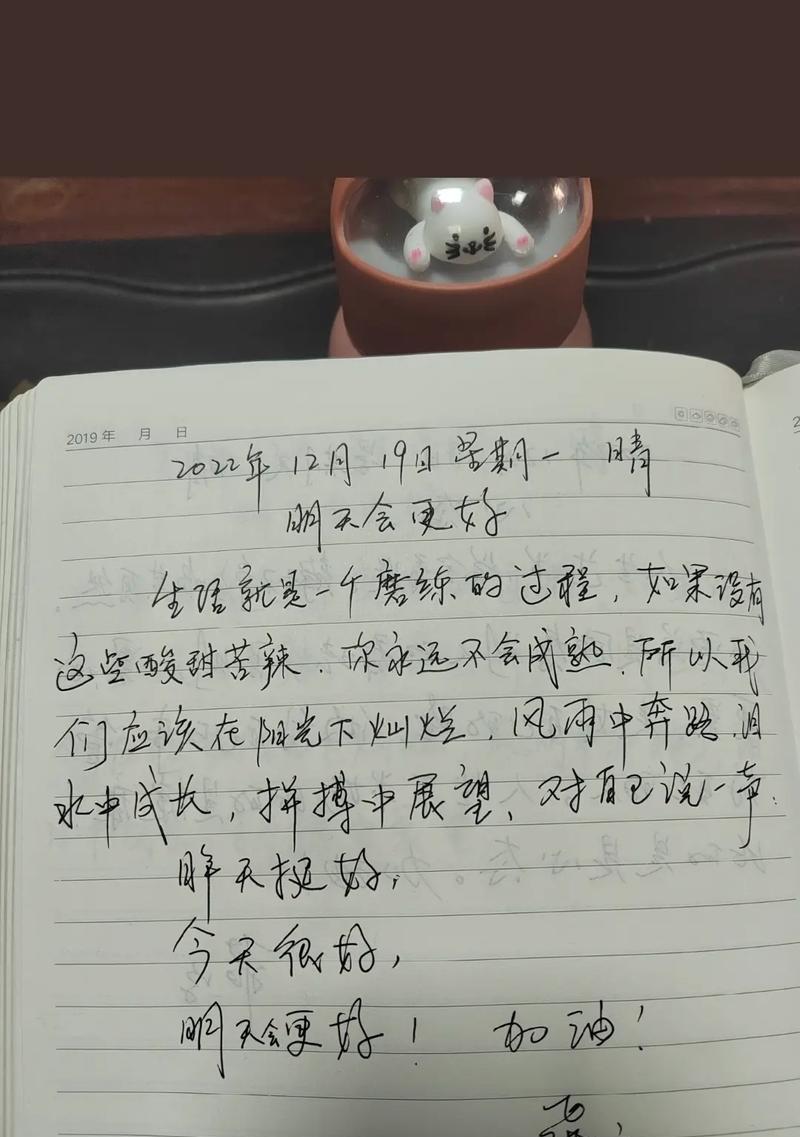 2019年 月 日
2022年 12月 19日 星期一 晴
明天会更好
生活就是一个磨练的过程，如果没有
这些酸甜苦辣．你永远不会成熟．所以我
们应该在阳光下灿烂，风雨中奔跑．泪
水中成长，拼搏中展望、对自己说一声：
昨天挺好，
今天很好，
明天会更好！ 加油！